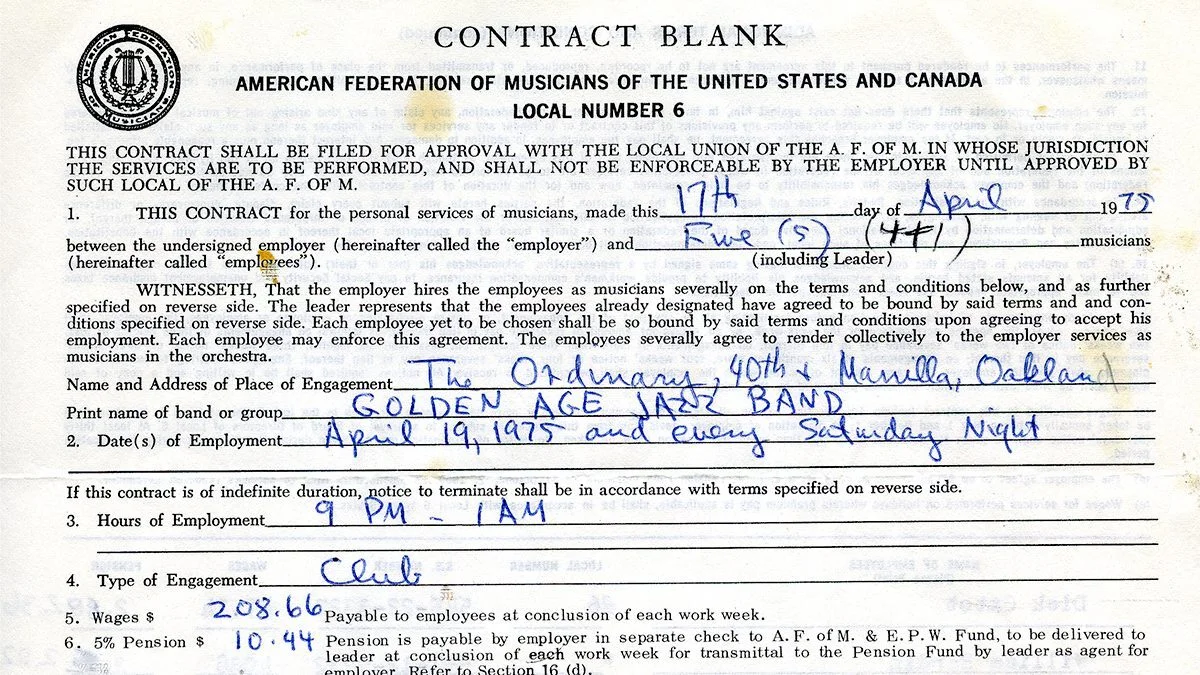 CONTRACT BLANK
AMERICAN FEDERATION OF MUSICIANS
AMERICAN FEDERATION OF MUSICIANS OF THE UNITED STATES AND CANADA
LOCAL NUMBER 6
THIS CONTRACT SHALL BE FILED FOR APPROVAL WITH THE LOCAL UNION OF THE A. F. OF M. IN WHOSE JURISDICTION
THE SERVICES ARE TO BE PERFORMED, AND SHALL NOT BE ENFORCEABLE BY THE EMPLOYER UNTIL APPROVED BY
SUCH LOCAL OF THE A. F. OF M.
1. THIS CONTRACT for the personal services of musicians, made this 17th day of April 1975
between the undersigned employer (hereinafter called the "employer") and Five (5) (4+1) musicians
(hereinafter called "employees"). (including Leader)
WITNESSETH, That the employer hires the employees as musicians severally on the terms and conditions below, and as further
specified on reverse side. The leader represents that the employees already designated have agreed to be bound by said terms and and con-
ditions specified on reverse side. Each employee yet to be chosen shall be so bound by said terms and conditions upon agreeing to accept his
employment. Each employee may enforce this agreement. The employees severally agree to render collectively to the employer services as
musicians in the orchestra.
Name and Address of Place of Engagement The Ordinary, 40th & Manilla, Oakland
Print name of band or group GOLDEN AGE JAZZ BAND
2. Date(s) of Employment April 19, 1975 and every Saturday Night
If this contract is of indefinite duration, notice to terminate shall be in accordance with terms specified on reverse side.
3. Hours of Employment 9 PM - 1 AM
4. Type of Engagement Club
5. Wages $ 208.66 Payable to employees at conclusion of each work week.
6. 5% Pension $ 10.44 Pension is payable by employer in separate check to A. F. of M. & E. P. W. Fund, to be delivered to
leader at conclusion of each work week for transmittal to the Pension Fund by leader as agent for
employer. Refer to Section 16 (d).